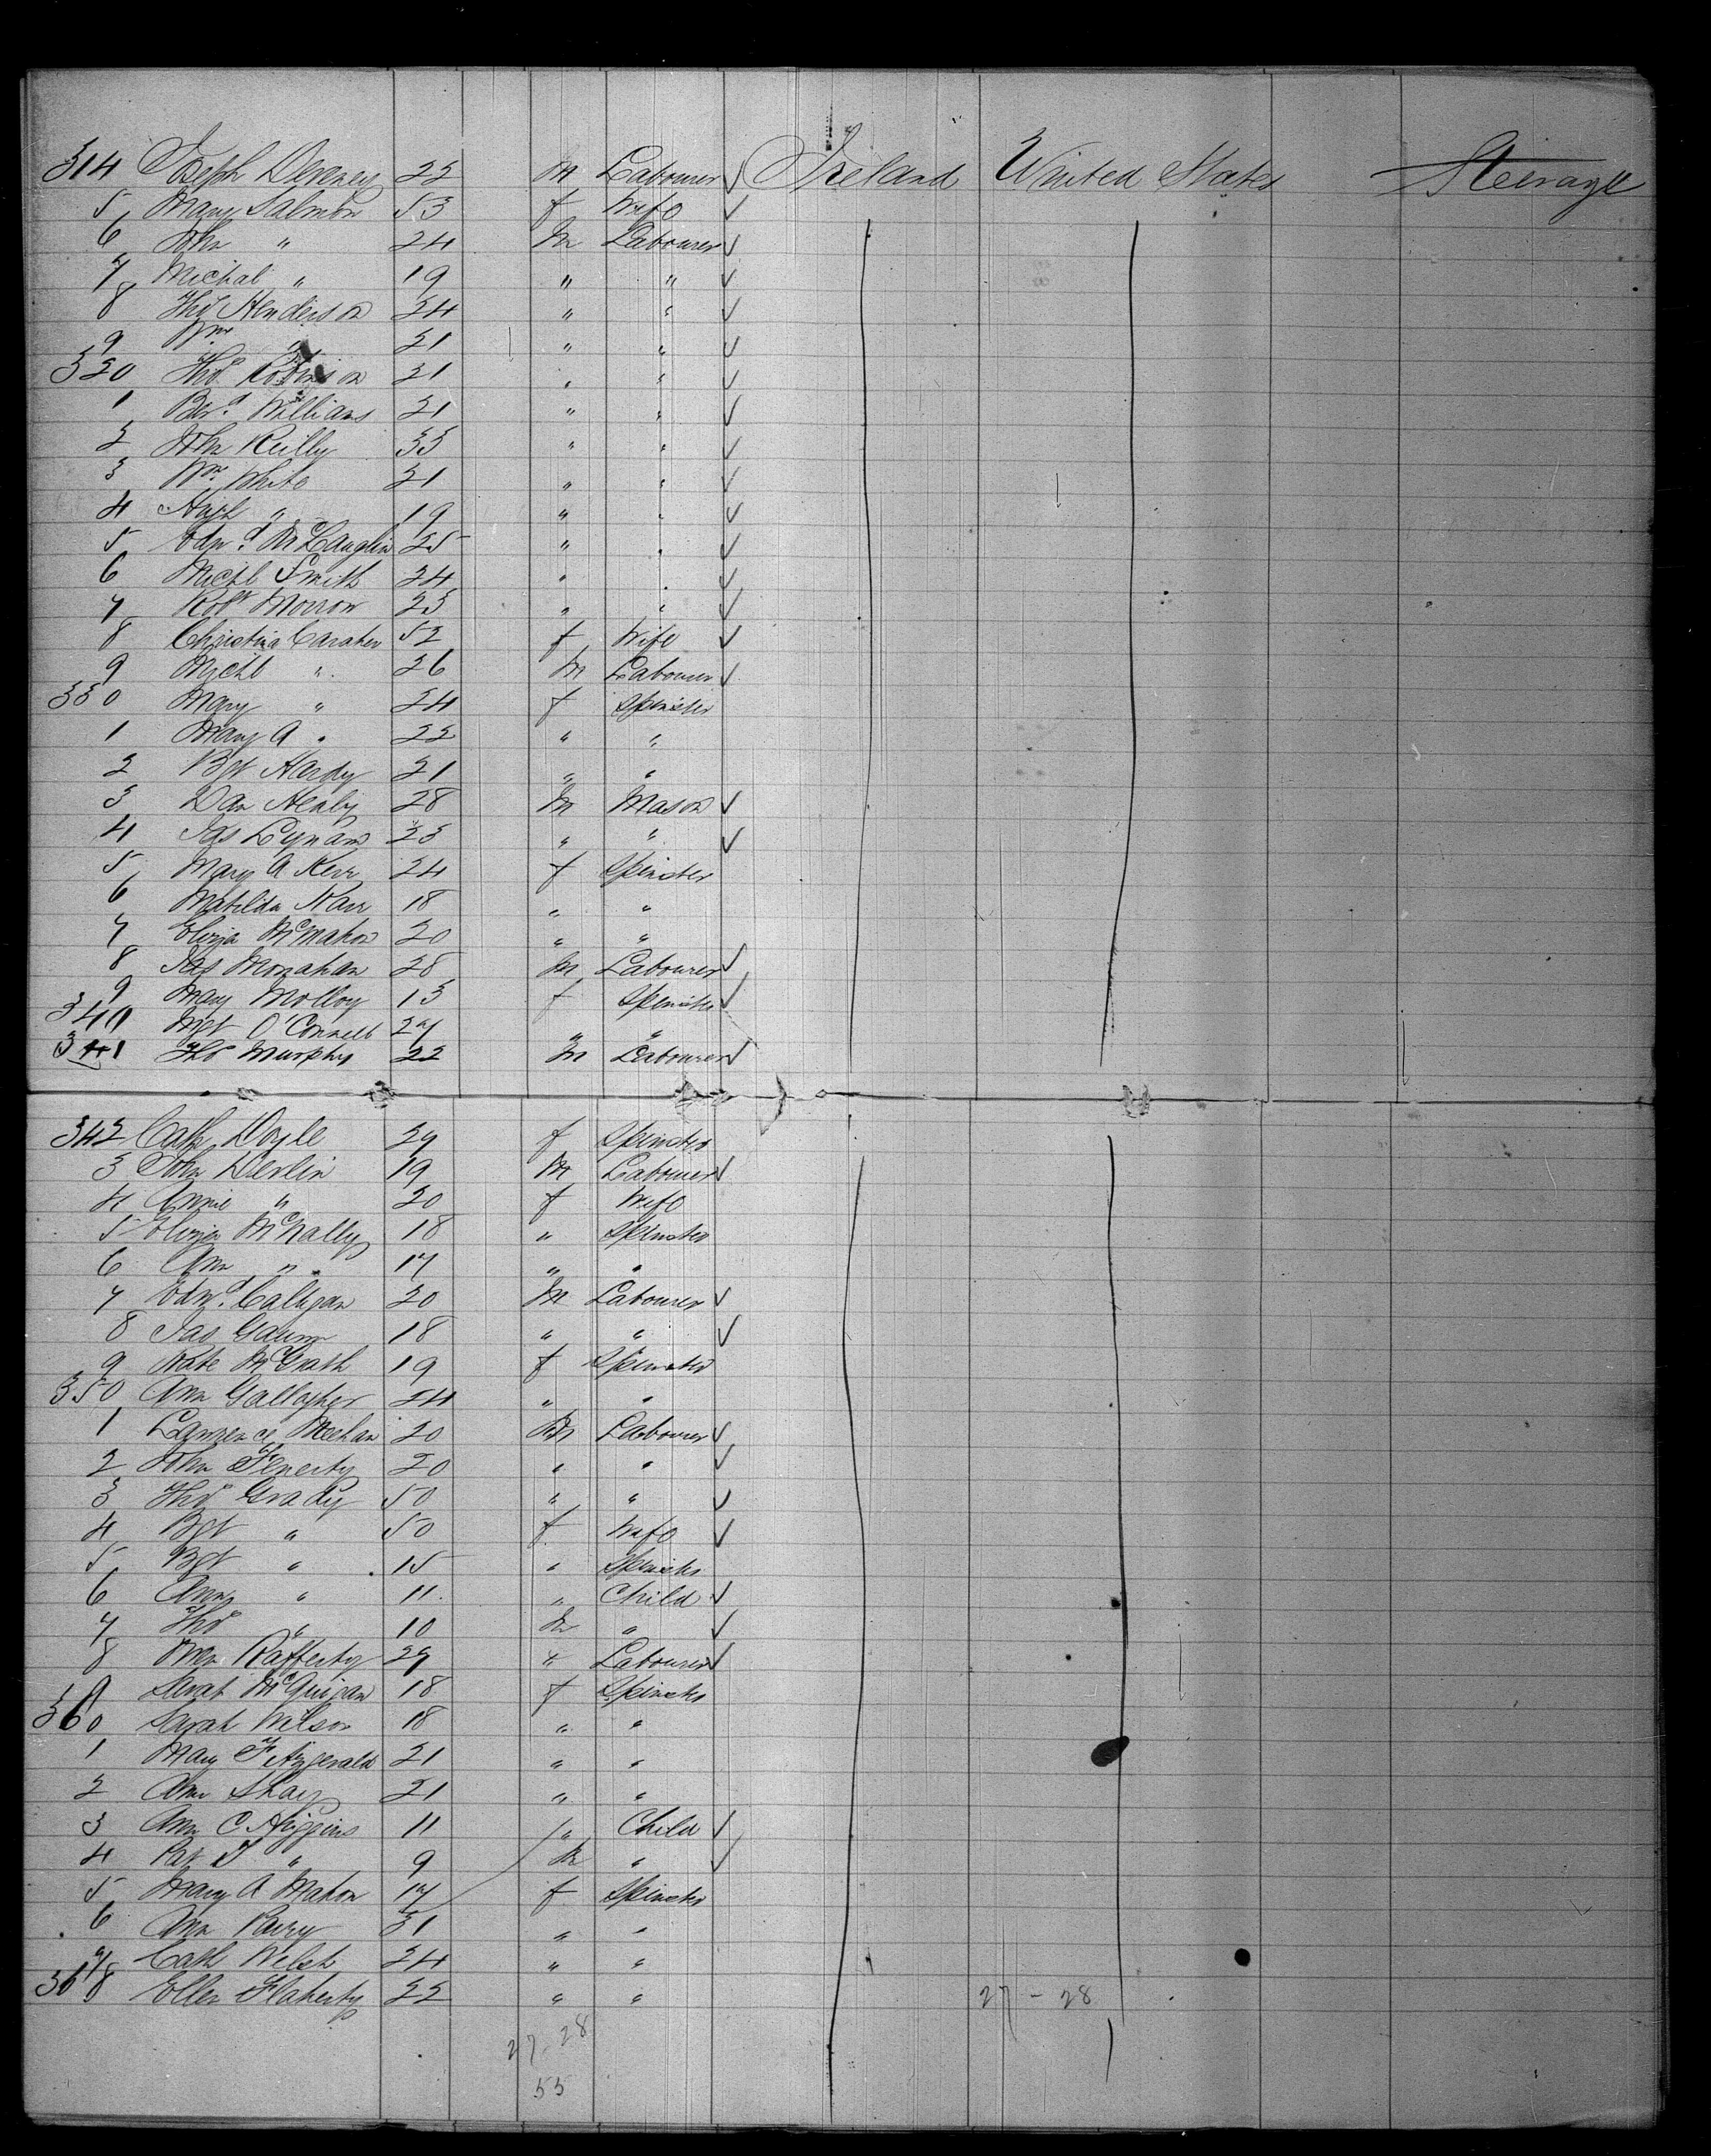 314 Joseph Devaney 22 M Labourer Ireland United States Steerage
5 Mary Salmon 53 f Wife
6 John " 24 M Labourer
7 Michal " 19 " "
8 Thos Henderson 24 " "
9 Wm " 21 " "
320 Thos Robinson 21 " "
1 Berd Willians 21 " "
2 John Reilly 33 " "
3 Wm White 21 " "
4 Hugh " 19 " "
5 Edwd McLauglin 25 " "
6 Michl Smith 24 " "
7 Robt Morrow 23 " "
8 Christina Caraher 52 f Wife
9 Michl " 26 M Labourer
330 Mary " 24 f Spinster
1 Mary A " 22 " "
2 Bgt Hardy 21 " "
3 Dan Healy 28 M Mason
4 Jas Lynam 23 " "
5 Mary A Kerr 24 f Spinster
6 Matilda Karr 18 " "
7 Eliza McMahon 20 " "
8 Jas Monahan 28 M Labourer
9 Mary Molloy 13 f Spinster
340 Mgt O'Connell 27 " "
341 Thos Murphy 22 M Labourer
342 Cath Doyle 29 f Spinster
3 John Devlin 19 M Labourer
4 Annie " 20 f Wife
5 Eliza McNally 18 " Spinster
6 Ann " 17 " "
7 Edwd Caligan 20 M Labourer
8 Jas 18 " "
9 Kate McGrath 19 f Spinster
350 Ann Gallagher 24 " "
1 Lawrence Meehan 20 M Labourer
2 John Finerty 20 " "
3 Thos Grady 50 " "
4 Bgt " 50 f Wife
5 Bgt " 15 " Spinster
6 Ann " 11 " Child
7 Thos " 10 M "
8 Rafferty 29 " Labourer
9 Sarah McGuigan 18 f Spinster
360 Sarah Wilson 18 " "
1 Mary Fitzgerald 21 " "
2 Ann Shay 21 " "
3 Ann C Higgins 11 " Child
4 Pat J " 9 M "
5 Mary A Mahon 17 f Spinster
6 Ann Parry 31 " "
7 Cath Welsh 24 " "
368 Ellen Flaherty 22 " "
27 - 28
27-28
55